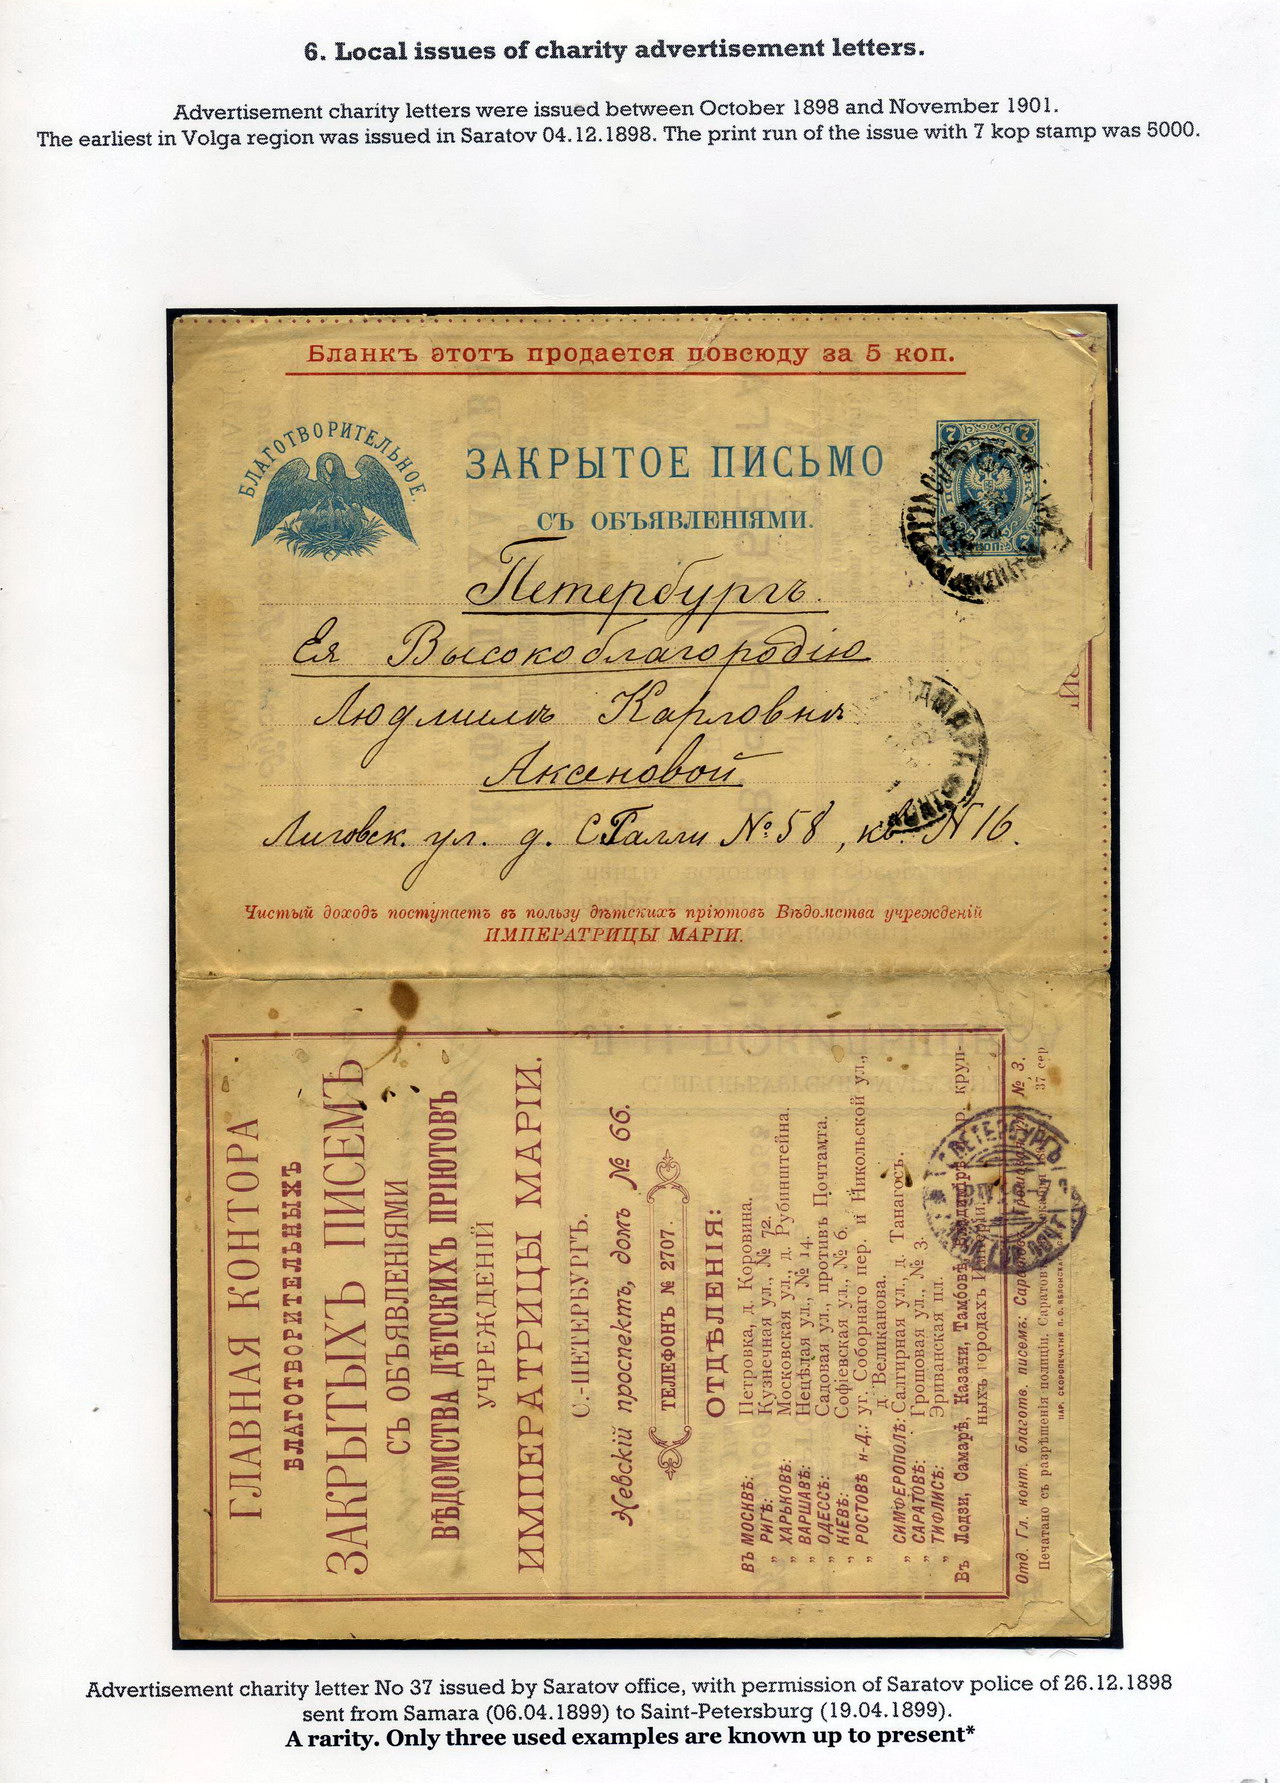 6. Local issues of charity advertisement letters.
Advertisement charity letters were issued between October 1898 and November 1901.
The earliest in Volga region was issued in Saratov 04.12.1898. The print run of the issue with 7 kop stamp was 5000.
Бланкъ этотъ продается повсюду за 5 коп.
БЛАГОТВОРИТЕЛЬНОЕ.
ЗАКРЫТОЕ ПИСЬМО
СЪ ОБЪЯВЛЕНІЯМИ.
7 7
7 7
Петербургъ.
Ея Высокоблагородію
Людмилѣ Карловнѣ
Аксеновой
Лиговск. ул. д. СГалли № 58, кв. N 16.
Чистый доходъ поступаетъ въ пользу дѣтскихъ пріютовъ Вѣдомства учрежденій
ИМПЕРАТРИЦЫ МАРІИ.
ГЛАВНАЯ КОНТОРА
БЛАГОТВОРИТЕЛЬНЫХЪ
ЗАКРЫТЫХЪ ПИСЕМЪ
СЪ ОБЪЯВЛЕНІЯМИ
ВѢДОМСТВА ДѢТСКИХЪ ПРІЮТОВЪ
УЧРЕЖДЕНІЙ
ИМПЕРАТРИЦЫ МАРІИ.
С.-ПЕТЕРБУРГЪ.
Невскій проспектъ, домъ № 66.
ТЕЛЕФОНЪ № 2707.
ОТДѢЛЕНІЯ:
ВЪ МОСКВѢ: Петровка, д. Коровина.
„ РИГѢ: Кузнечная ул., № 72.
„ ХАРЬКОВѢ: Московская ул., д. Рубинштейна.
„ ВАРШАВѢ: Нецѣлая ул., № 14.
„ ОДЕССѢ: Садовая ул., противъ Почтамта.
„ КІЕВѢ: Софіевская ул., № 6.
„ РОСТОВѢ н-Д.: уг. Соборнаго пер. и Никольской ул.,
д. Великанова.
„ СИМФЕРОПОЛѢ: Салгирная ул., д. Танагосъ.
„ САРАТОВѢ: Грошовая ул., № 3.
„ ТИФЛИСѢ: Эриванская пл.
Въ Лодзи, Самарѣ, Казани, Тамбовѣ, Владимірѣ круп-
ныхъ городахъ Имперіи.
Отд. Гл. конт. благотв. писемъ. Саратовъ, Грошовая № 3.
Печатано съ разрѣшенія полиціи. Саратовъ 37 сер
ПАР. СКОРОПЕЧАТНЯ П. О. ЯБЛОНСКАГО
САМАРА
С.ПЕТЕРБУРГЪ
Advertisement charity letter No 37 issued by Saratov office, with permission of Saratov police of 26.12.1898
sent from Samara (06.04.1899) to Saint-Petersburg (19.04.1899).
A rarity. Only three used examples are known up to present*